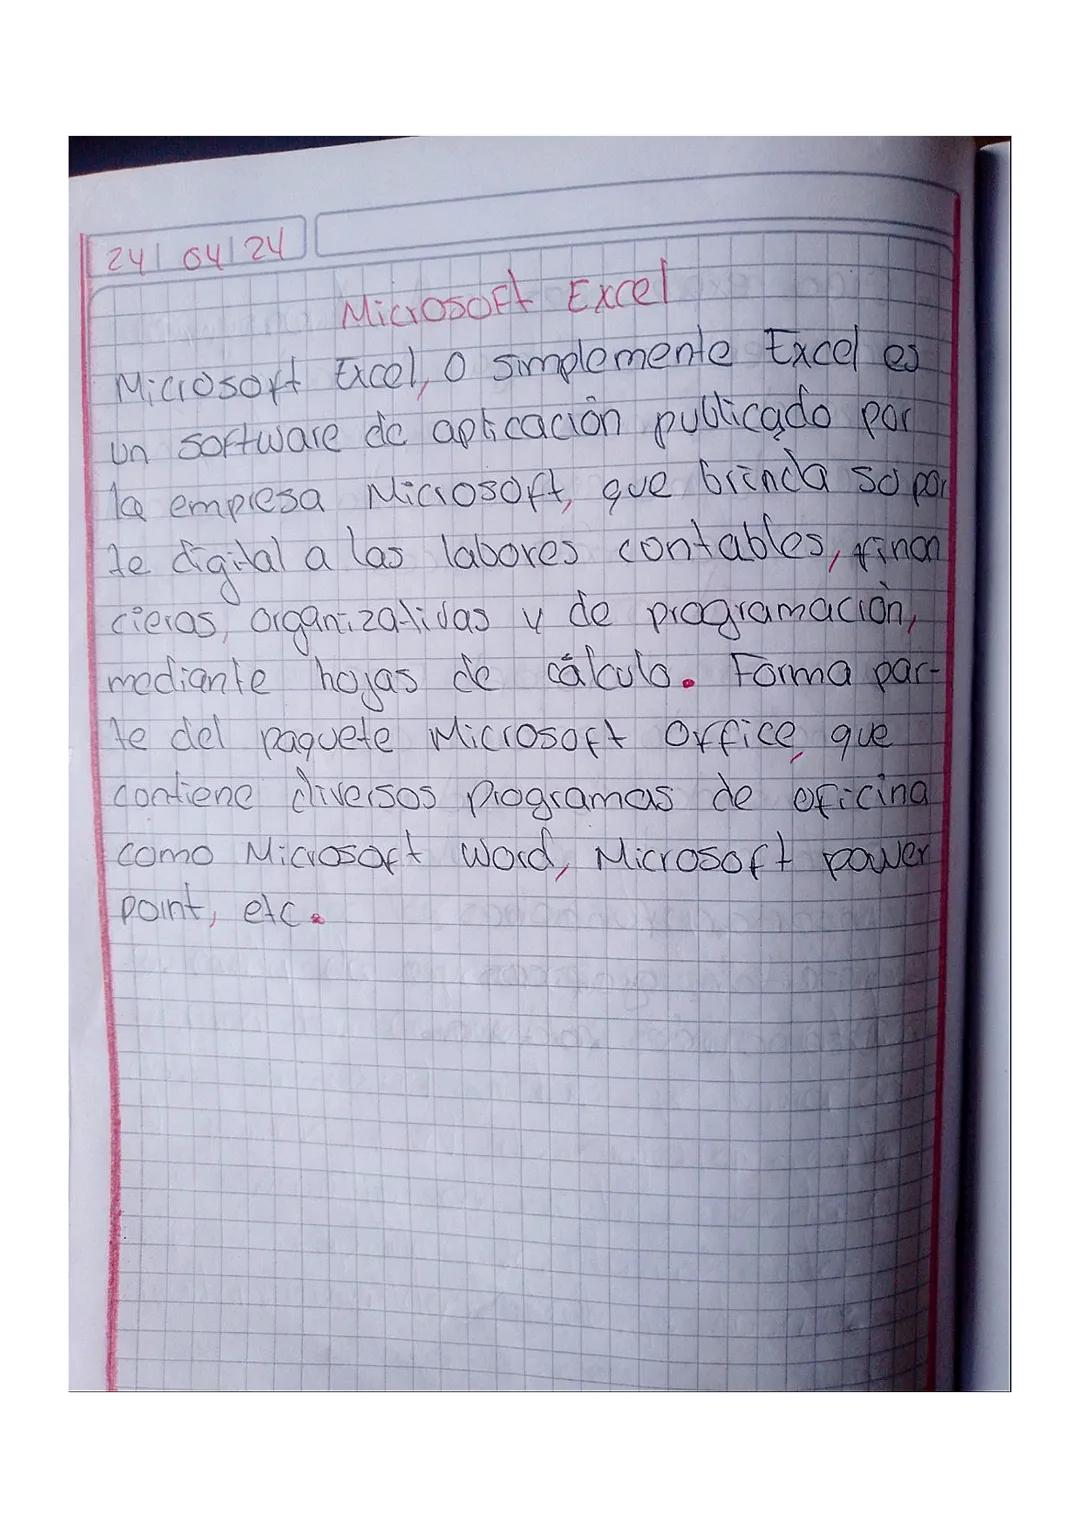 24/04/24
Microsoft Excel
Microsoft Excel, o simplemente Excel es
un software de aplicación publicado por
la empresa Microsoft, que brinda so por
te digital a las labores contables, finan
cieras, organizativas y de programación,
mediante hojas de cálculo. Forma par-
te del paquete Microsoft Office, que
contiene diversos programas de oficina
como Microsoft Word, Microsoft power
point, etc.